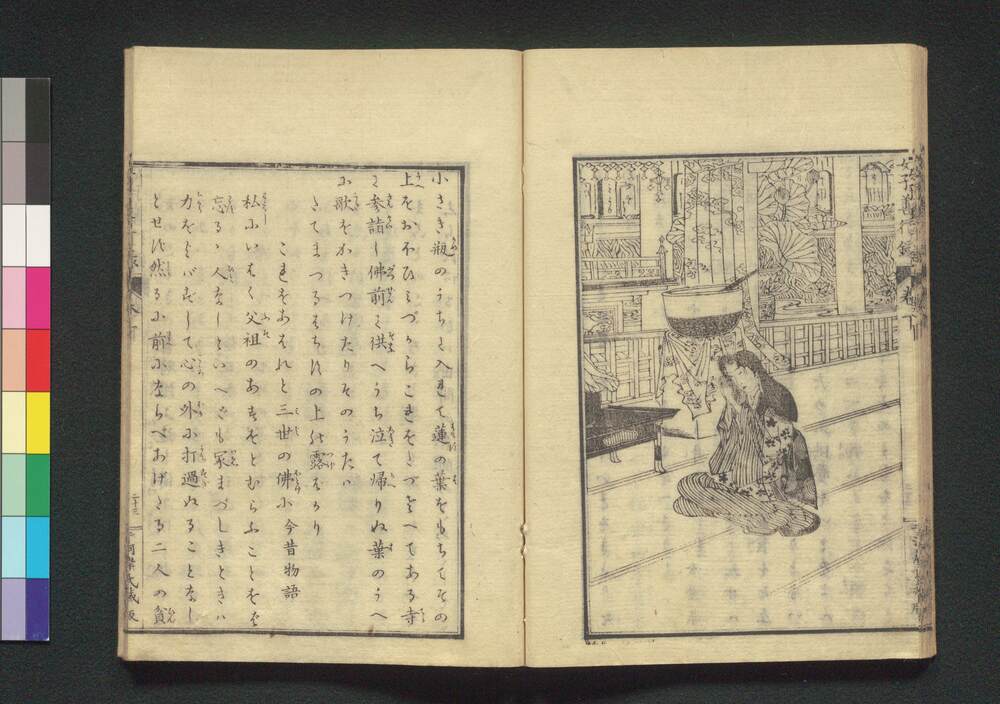 小さき瓶のうちに入れて蓮の葉をもちてその
上をおほひみづからこれをたづさへてある寺
に参詣し佛前に供へうち泣て帰りぬ葉のうへ
に歌をかきつけたりそのうたハ
たてまつるはちすの上の露ばかり
これをあはれと三世の佛に 今昔物語
私にいはく父祖のあとをとむらふことをば
忘るゝ人なしといへども家まづしきときハ
力およバずして心の外に打過ぬることなし
とせず然るに前にならべあげたる二人の貧
二十三
卷下